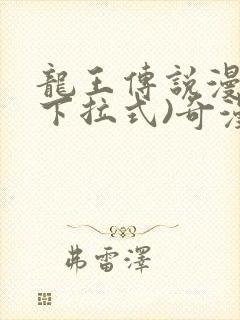 龍王傳說漫
下拉式)奇漫
弗雷澤